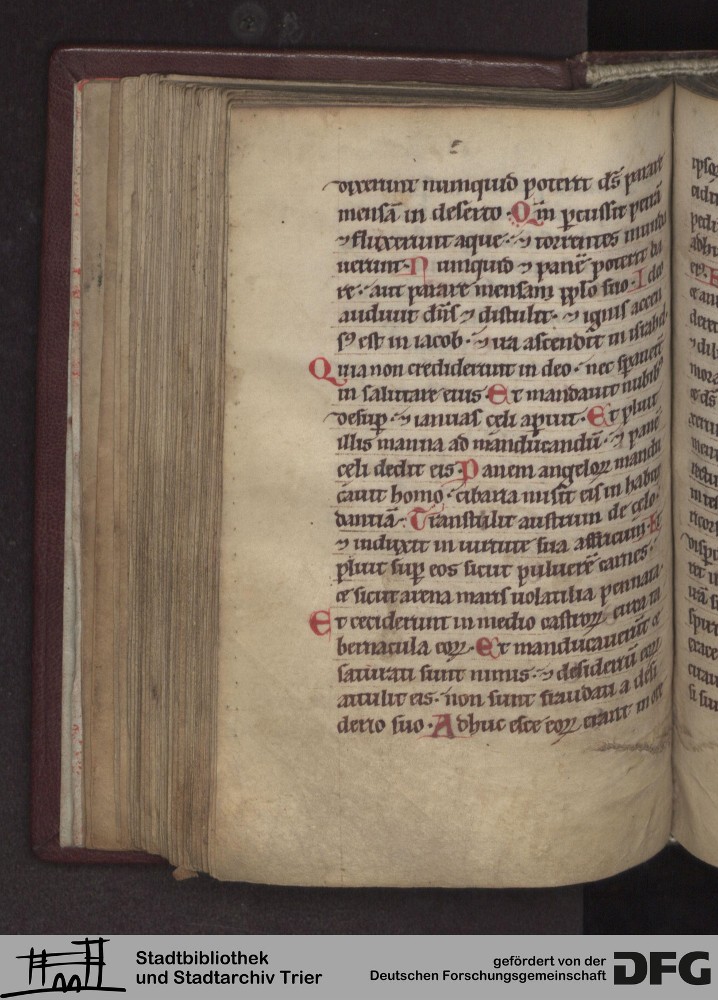 dixerunt nunquid poterit ds̄ parare
mensā in deserto. Qm̄ ꝑcussit petrā
⁊ fluxerunt aque. ⁊ torrentes inunda
uerunt. Nunquid ⁊ panē poterit da
re. aut parare mensam pplo suo. Ideo
audiuit dn̄s ⁊ distulit. ⁊ ignis accen
sꝰ est in iacob. ⁊ ira ascendit in israhel.
Quia non crediderunt in deo. nec sꝑauert̄
in salutare eius Et mandauit nubibꝰ
desuꝑ. ⁊ ianuas celi aꝑuit. Et pluit
illis manna ad manducandū. ⁊ panē
celi dedit eis. Panem angeloꝝ mandu
cauit homo. cibaria misit eis in habun
dantiā. Transtulit austrum de celo.
⁊ induxit in uirtute sua affricum. Et
pluit suꝑ eos sicut puluerē carnes.
et sicut arena maris uolatilia pennata.
Et ceciderunt in medio castroꝝ. circa ta
bernacula eoꝝ. Et manducauerūt et
saturati sunt nimis. ⁊ desideriū eoꝝ
attulit eis. non sunt fraudati a desi
derio suo. Adhuc esce eoꝝ erant in ore
Stadtbibliothek
und Stadtarchiv Trier
gefördert von der
Deutschen Forschungsgemeinschaft
DFG